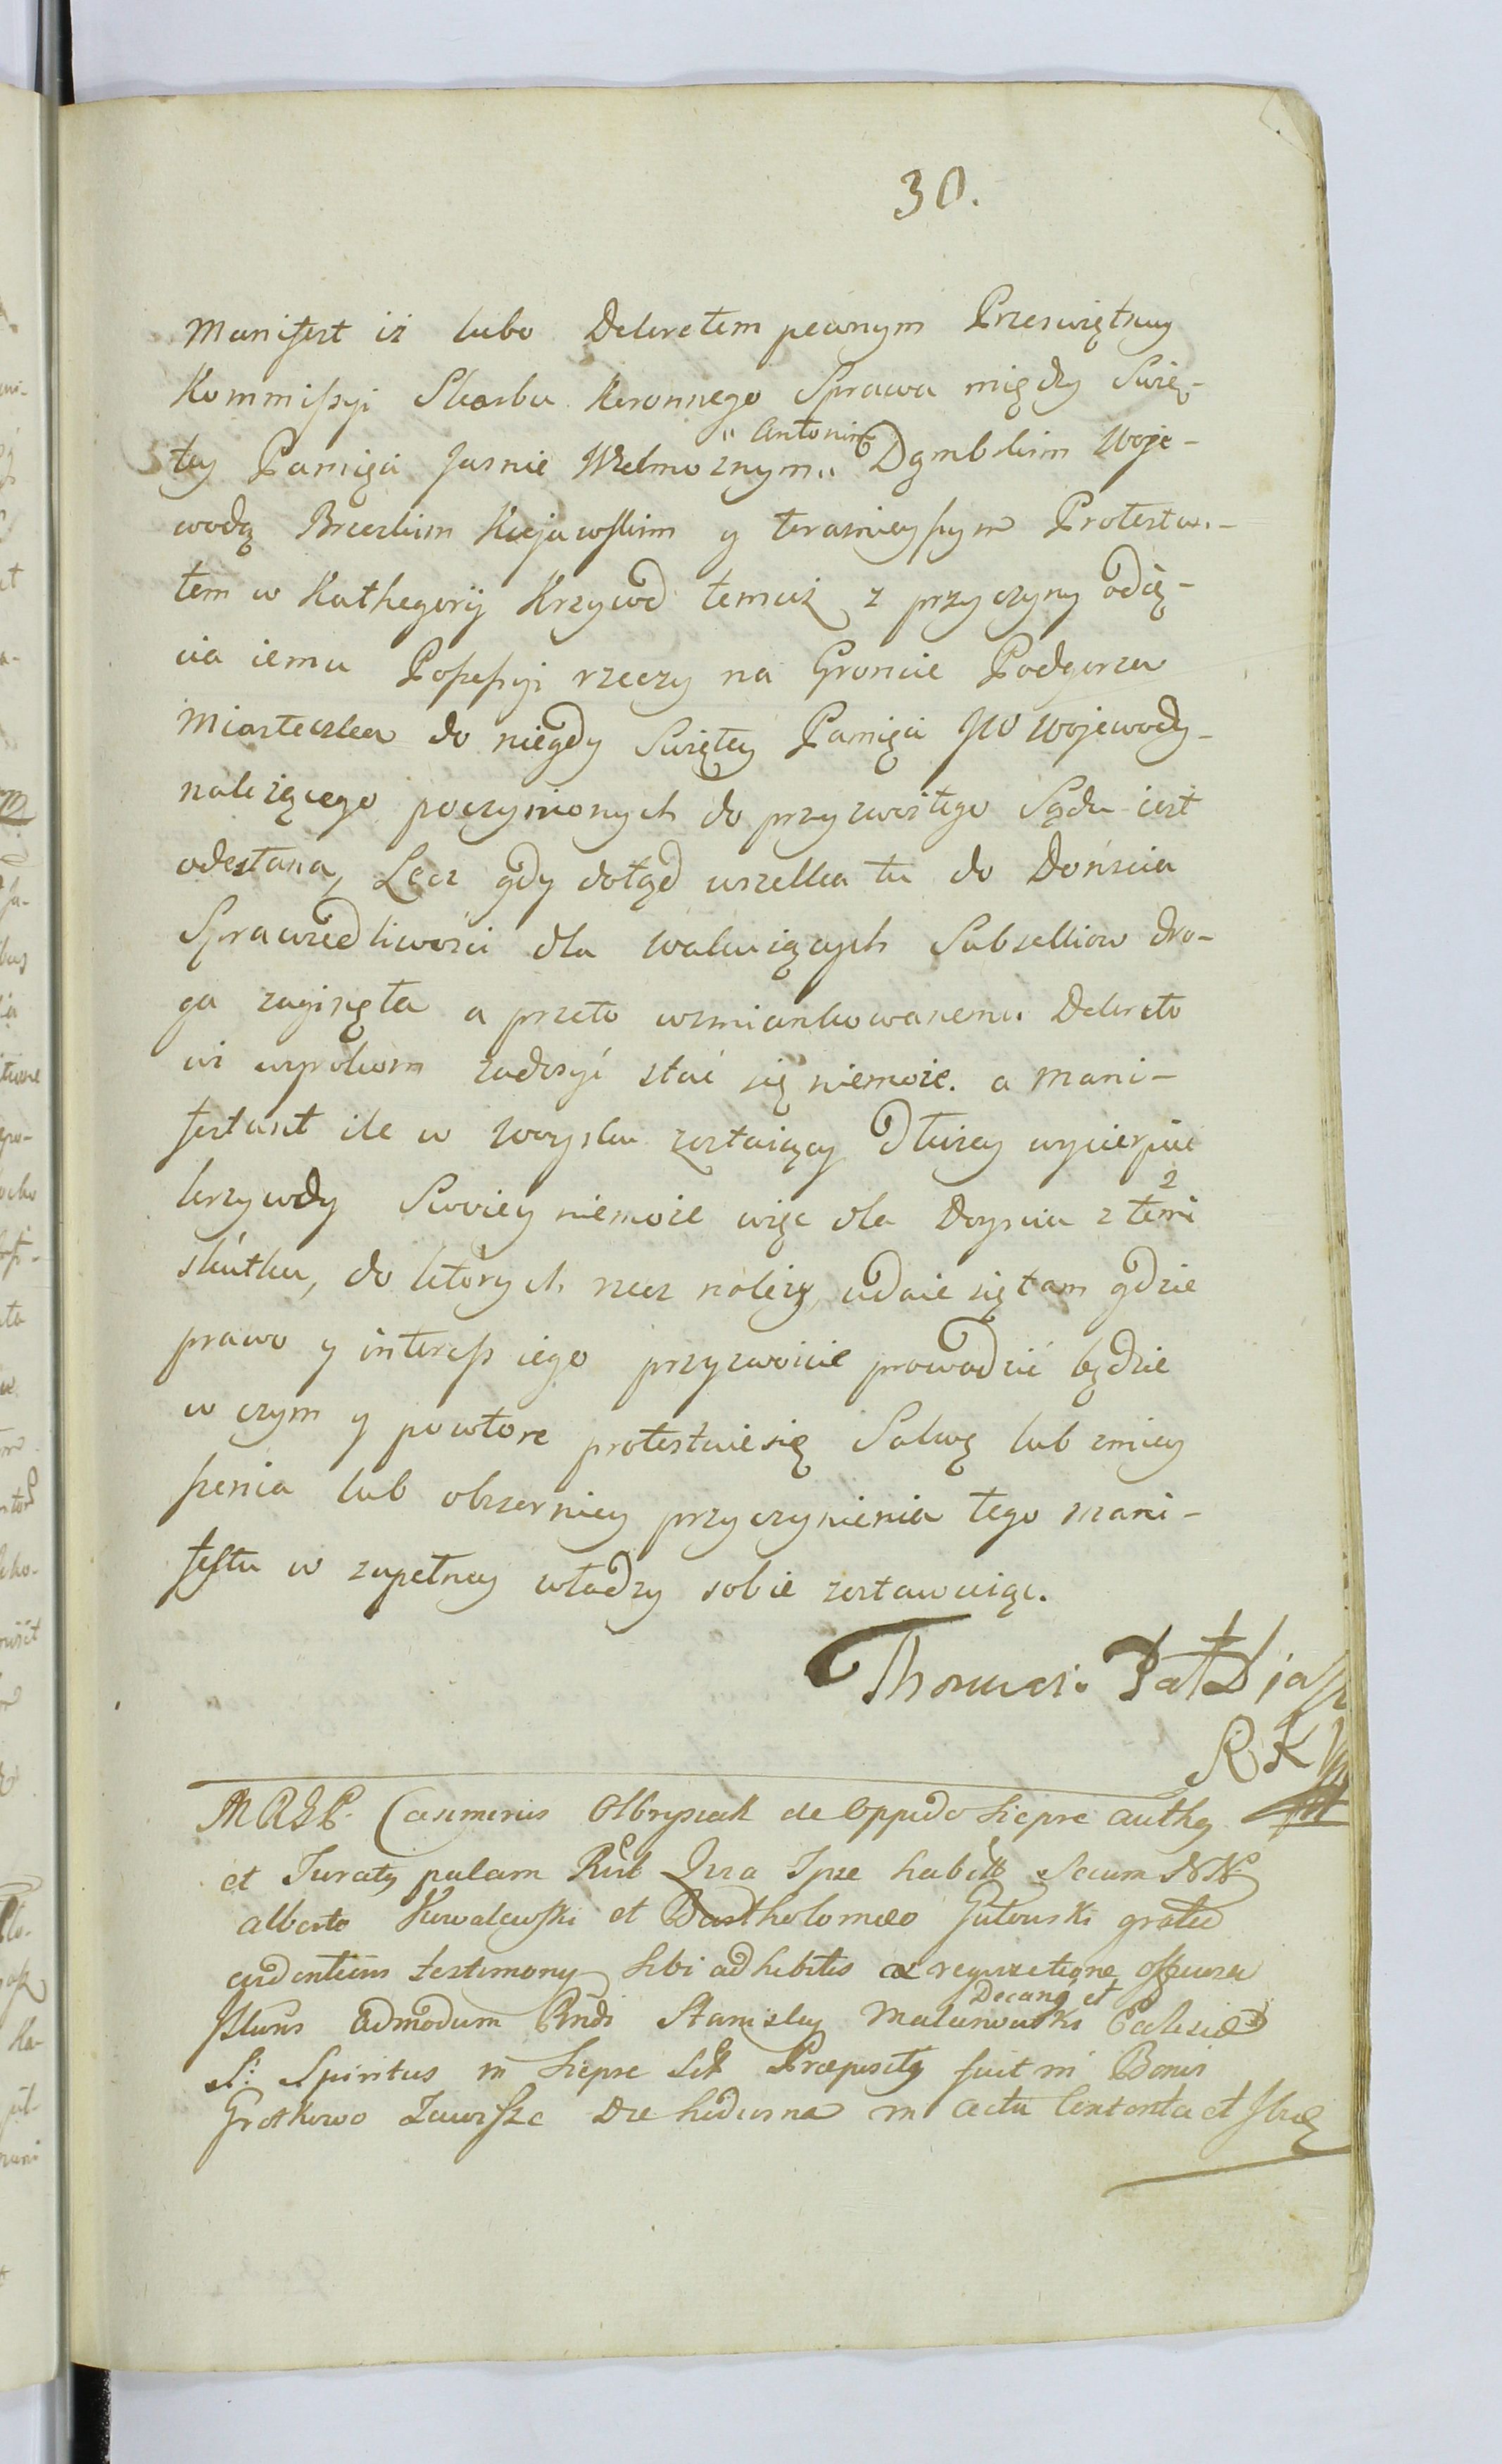 30.
Manifest iż lubo Dekretem pewnym Przeświętney
Kommissyi Skarbu Koronnego Sprawa między Swię-
tey Pamięci Jasnie Wielmożnym „Antonim" Dąmbskim Woje-
wodą Brzeskim Kujawskim y teraznieyszym Protestan-
tem w Kathegoryi Krzywd temuż z przyczyny odię-
cia iemu Possessyi rzeczy na Groncie Podgorza
Miasteczka do niegdy Swiętey Pamięci JW Wojewody
należącego poczynionych do przyzwoitego Sądu iest
odesłana, Lecz gdy dotąd wszelka tu do Dońscia
Sprawiedliwości dla wakuiących Subselliow dro-
ga zaginęła a przeto wzmiankowanemu Dekreto
wi wyrokom zadosyć stać się niemoże. a mani-
festant ile w Woysku zostaiący Dłużey wycierpieć
krzywdy Swoiey niemoże więc dla Doyscia z temi
skutku, do których rzecz należy, udaie się tam gdzie
prawo y interess iego przyzwoicie prowadzić będzie
w czym y powtore protestuie się Salwę lub zmiey
szenia lub obszerniey przyczynienia tego mani-
festu w zupełney władzy sobie zostawuiąc.
Thomasz
RK
Casimirus Olbryszak de Oppido Siepre
et Juratus palam Quia Ipse habitis Secum NN
Alberto Kowalewski et Bartholomeo Gutowski
testimony sibi adhibitis
Admodum Rndi Stanislai Decang et Ecclesiæ
S: Spiritus in Siepre Præpositg fuit in Bonis
Grotkowo Zawisze Die hodierna in actu Contenta et